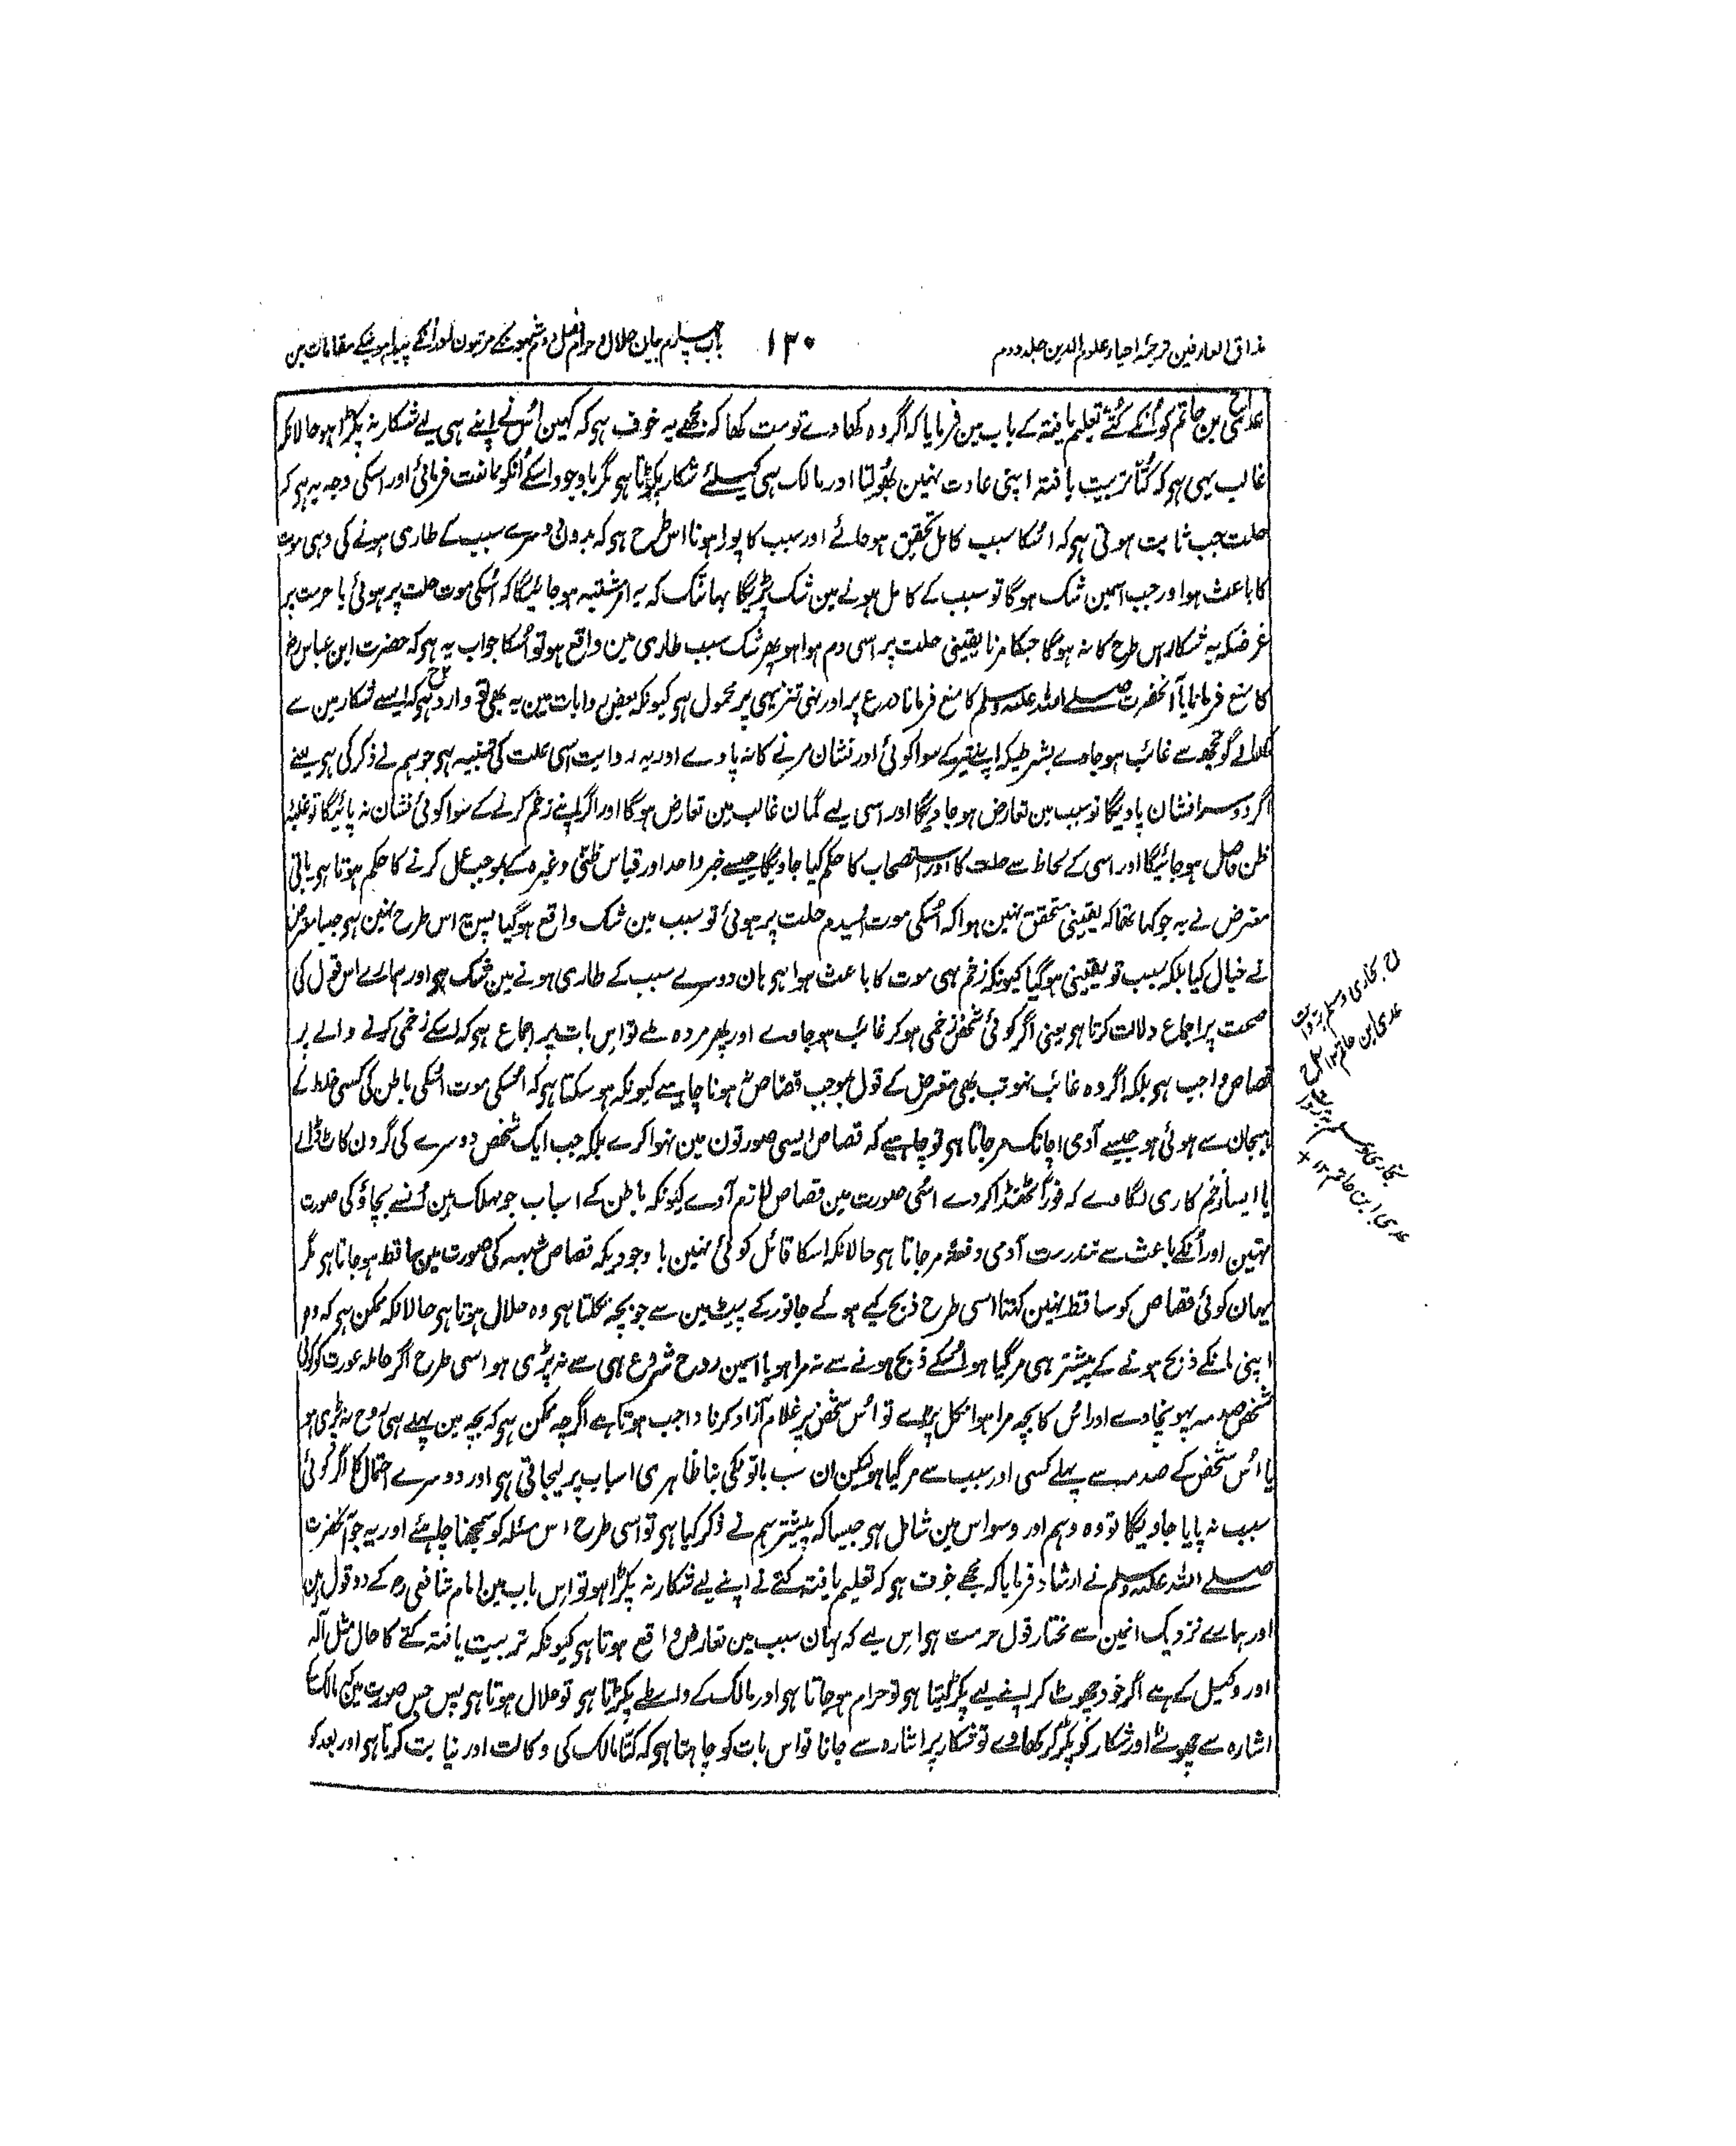 مذاق العارفین ترجمہ احیاء علوم الدین جلد دوم
۱۳۰
باب چہارم بیان حلال و حرام فصل دوم شبہونکے مرتبون اور انکے پیدا ہونیکے مقامات مین
عدی بن حاتم کو اُنکے کُتّے تعلیم یافتہ کے باب مین فرمایا کہ اگر وہ کھاوے تو مت کھا کہ مجھے یہ خوف ہی کہ کہین اُس نے اپنے ہی لیے شکار نہ پکڑا ہو حالانکہ
غالب یہی ہی کہ کُتّا تربیت یافتہ اپنی عادت نہین بھُولتا اور مالک ہی کیلئے شکار پکڑتا ہی مگر باوجود اسکے اُنکو مانعت فرمائی اور اسکی وجہ یہ ہی کہ
حلت جب ثابت ہوتی ہی کہ اُسکا سبب کامل تحقیق ہوجائے اور سبب کا پورا ہونا اس طرح ہی کہ بدون دوسرے سبب کے طاری ہونے کی وہی موت
کا باعث ہوا ور جب اسمین شک ہوگا تو سبب کے کامل ہونے مین شک پڑیگا یہانتک کہ یہ امر مشتبہ ہوجائیگا کہ اُسکی موت حلت پر ہوئی یا حرمت پر
غرضکہ یہ شکار اس طرح کا نہ ہوگا جسکا مرنا یقینی حلت پر اسی دم ہوا ہو پھر شک سبب طاری مین واقع ہو تو اُسکا جواب یہ ہی کہ حضرت ابن عباس رض
کا منع فرمانا یا آنحضرت صلے اللہ علیہ وسلم کا منع فرمانا ورع پر اور نہی تنزیہی پر محمول ہی کیونکہ بعض روایات مین یہ بھی تو وارد ہی کہ ایسے شکار مین سے
کھالے گو تجھ سے غائب ہوجاوے بشرطیکہ اپنے تیر کے سوا کوئی اور نشان مرنے کا نہ پاوے اور یہ روایت اسی علت کی تنبیہ ہی جو ہم نے ذکر کی ہی یعنے
اگر دوسرا نشان پاویگا تو سبب مین تعارض ہوجاویگا اور اسی لیے گمان غالب مین تعارض ہوگا اور اگر اپنے زخم کرنے کے سوا کوئی نشان نہ پائیگا تو غلبۂ
ظن حاصل ہوجائیگا اور اسی کے لحاظ سے حلت کا اور استصحاب کا حکم کیا جاویگا جیسے خبر واحد اور قیاس ظنّی وغیرہ کے بموجب عمل کرنے کا حکم ہوتا ہی باقی
معترض نے یہ جو کہا تھا کہ یقینی متحقق نہین ہوا کہ اُسکی موت اُسیدم حلت پر ہوئی تو سبب مین شک واقع ہوگیا پس یہ اس طرح نہین ہی جیسا معترض
نے خیال کیا بلکہ سبب تو یقینی ہوگیا کیونکہ زخم ہی موت کا باعث ہوا ہی ہان دوسرے سبب کے طاری ہونے مین شک ہی اور ہمارے اس قول کی
صحت پر اجماع دلالت کرتا ہی یعنی اگر کوئی شخص زخمی ہوکر غائب ہوجاوے اور پھر مردہ ملے تو اس بات پر اجماع ہی کہ اسکے زخمی کرنے والے پر
قصاص واجب ہی بلکہ اگر وہ غائب نہو تب بھی معترض کے قول بموجب قصاص نہ ہونا چاہیے کیونکہ ہوسکتا ہی کہ اُسکی موت اُسکی باطن کی کسی خلط کے
ہیجان سے ہوئی ہو جیسے آدمی اچانک مر جاتا ہی تو چاہیے کہ قصاص ایسی صورتون مین نہوا کرے بلکہ جب ایک شخص دوسرے کی گردن کاٹ ڈالے
یا ایسا زخم کاری لگاوے کہ فوراً ٹھنڈا کردے اسی صورت مین قصاص لازم آوے کیونکہ باطن کے اسباب جو مہلک ہین اُنسے بچاؤ کی صورت
نہین اور اُنکے باعث سے تندرست آدمی دفعۃً مر جاتا ہی حالانکہ اسکا قائل کوئی نہین باوجودیکہ قصاص شبہہ کی صورت مین ساقط ہوجاتا ہی مگر
یہان کوئی قصاص کو ساقط نہین کہتا اسی طرح ذبح کیے ہوئے جانور کے پیٹ مین سے جو بچہ نکلتا ہی وہ حلال ہوتا ہی حالانکہ ممکن ہی کہ وہ
اپنی مانکے ذبح ہونے کے پیشتر ہی مر گیا ہو اُسکے ذبح ہونے سے نہ مرا ہو یا اسمین روح شروع ہی سے نہ پڑی ہو اسی طرح اگر حاملہ عورت کو کوئی
شخص صدمہ پہونچاوے اور اُس کا بچہ مرا ہوا نکل پڑے تو اُس شخص پر غلام آزاد کرنا واجب ہوتا ہے اگرچہ ممکن ہی کہ بچہ مین پہلے ہی روح نہ پڑی ہو
یا اُس شخص کے صدمہ سے پہلے کسی اور سبب سے مر گیا ہو لیکن ان سب باتونکی بنا ظاہری اسباب پر لیجاتی ہی اور دوسرے احتمال کا اگر کوئی
سبب نہ پایا جاویگا تو وہ وہم اور وسواس مین شامل ہی جیسا کہ پیشتر ہم نے ذکر کیا ہی تو اسی طرح اس مسئلہ کو سمجھنا چاہئے اور یہ جو آنحضرت
صلے اللہ علیہ وسلم نے ارشاد فرمایا کہ مجھے خوف ہی کہ تعلیم یافتہ کتے نے اپنے لیے شکار نہ پکڑا ہو تو اس باب مین امام شافعی رح کے دو قول ہین
اور ہمارے نزدیک انمین سے مختار قول حرمت ہی اس لیے کہ یہان سبب مین تعارض واقع ہوتا ہی کیونکہ تربیت یافتہ کتے کا حال مثل آلہ
اور وکیل کے ہے اگر خود چھوٹ کر اپنے لیے پکڑ لیتا ہی تو حرام ہوجاتا ہی اور مالک کے واسطے پکڑتا ہی تو حلال ہوتا ہی پس جس صورت مین کہ مالک کے
اشارہ سے چھوٹے اور شکار کو پکڑ کر کھاوے تو شکار پر اشارہ سے جانا تو اس بات کو چاہتا ہی کہ کتّا مالک کی وکالت اور نیابت کرتا ہی اور بعد کو
بخاری و مسلم بروایت
عدی ابن حاتم ۱۲
بخاری و مسلم بروایت
عدی ابن حاتم ۱۲